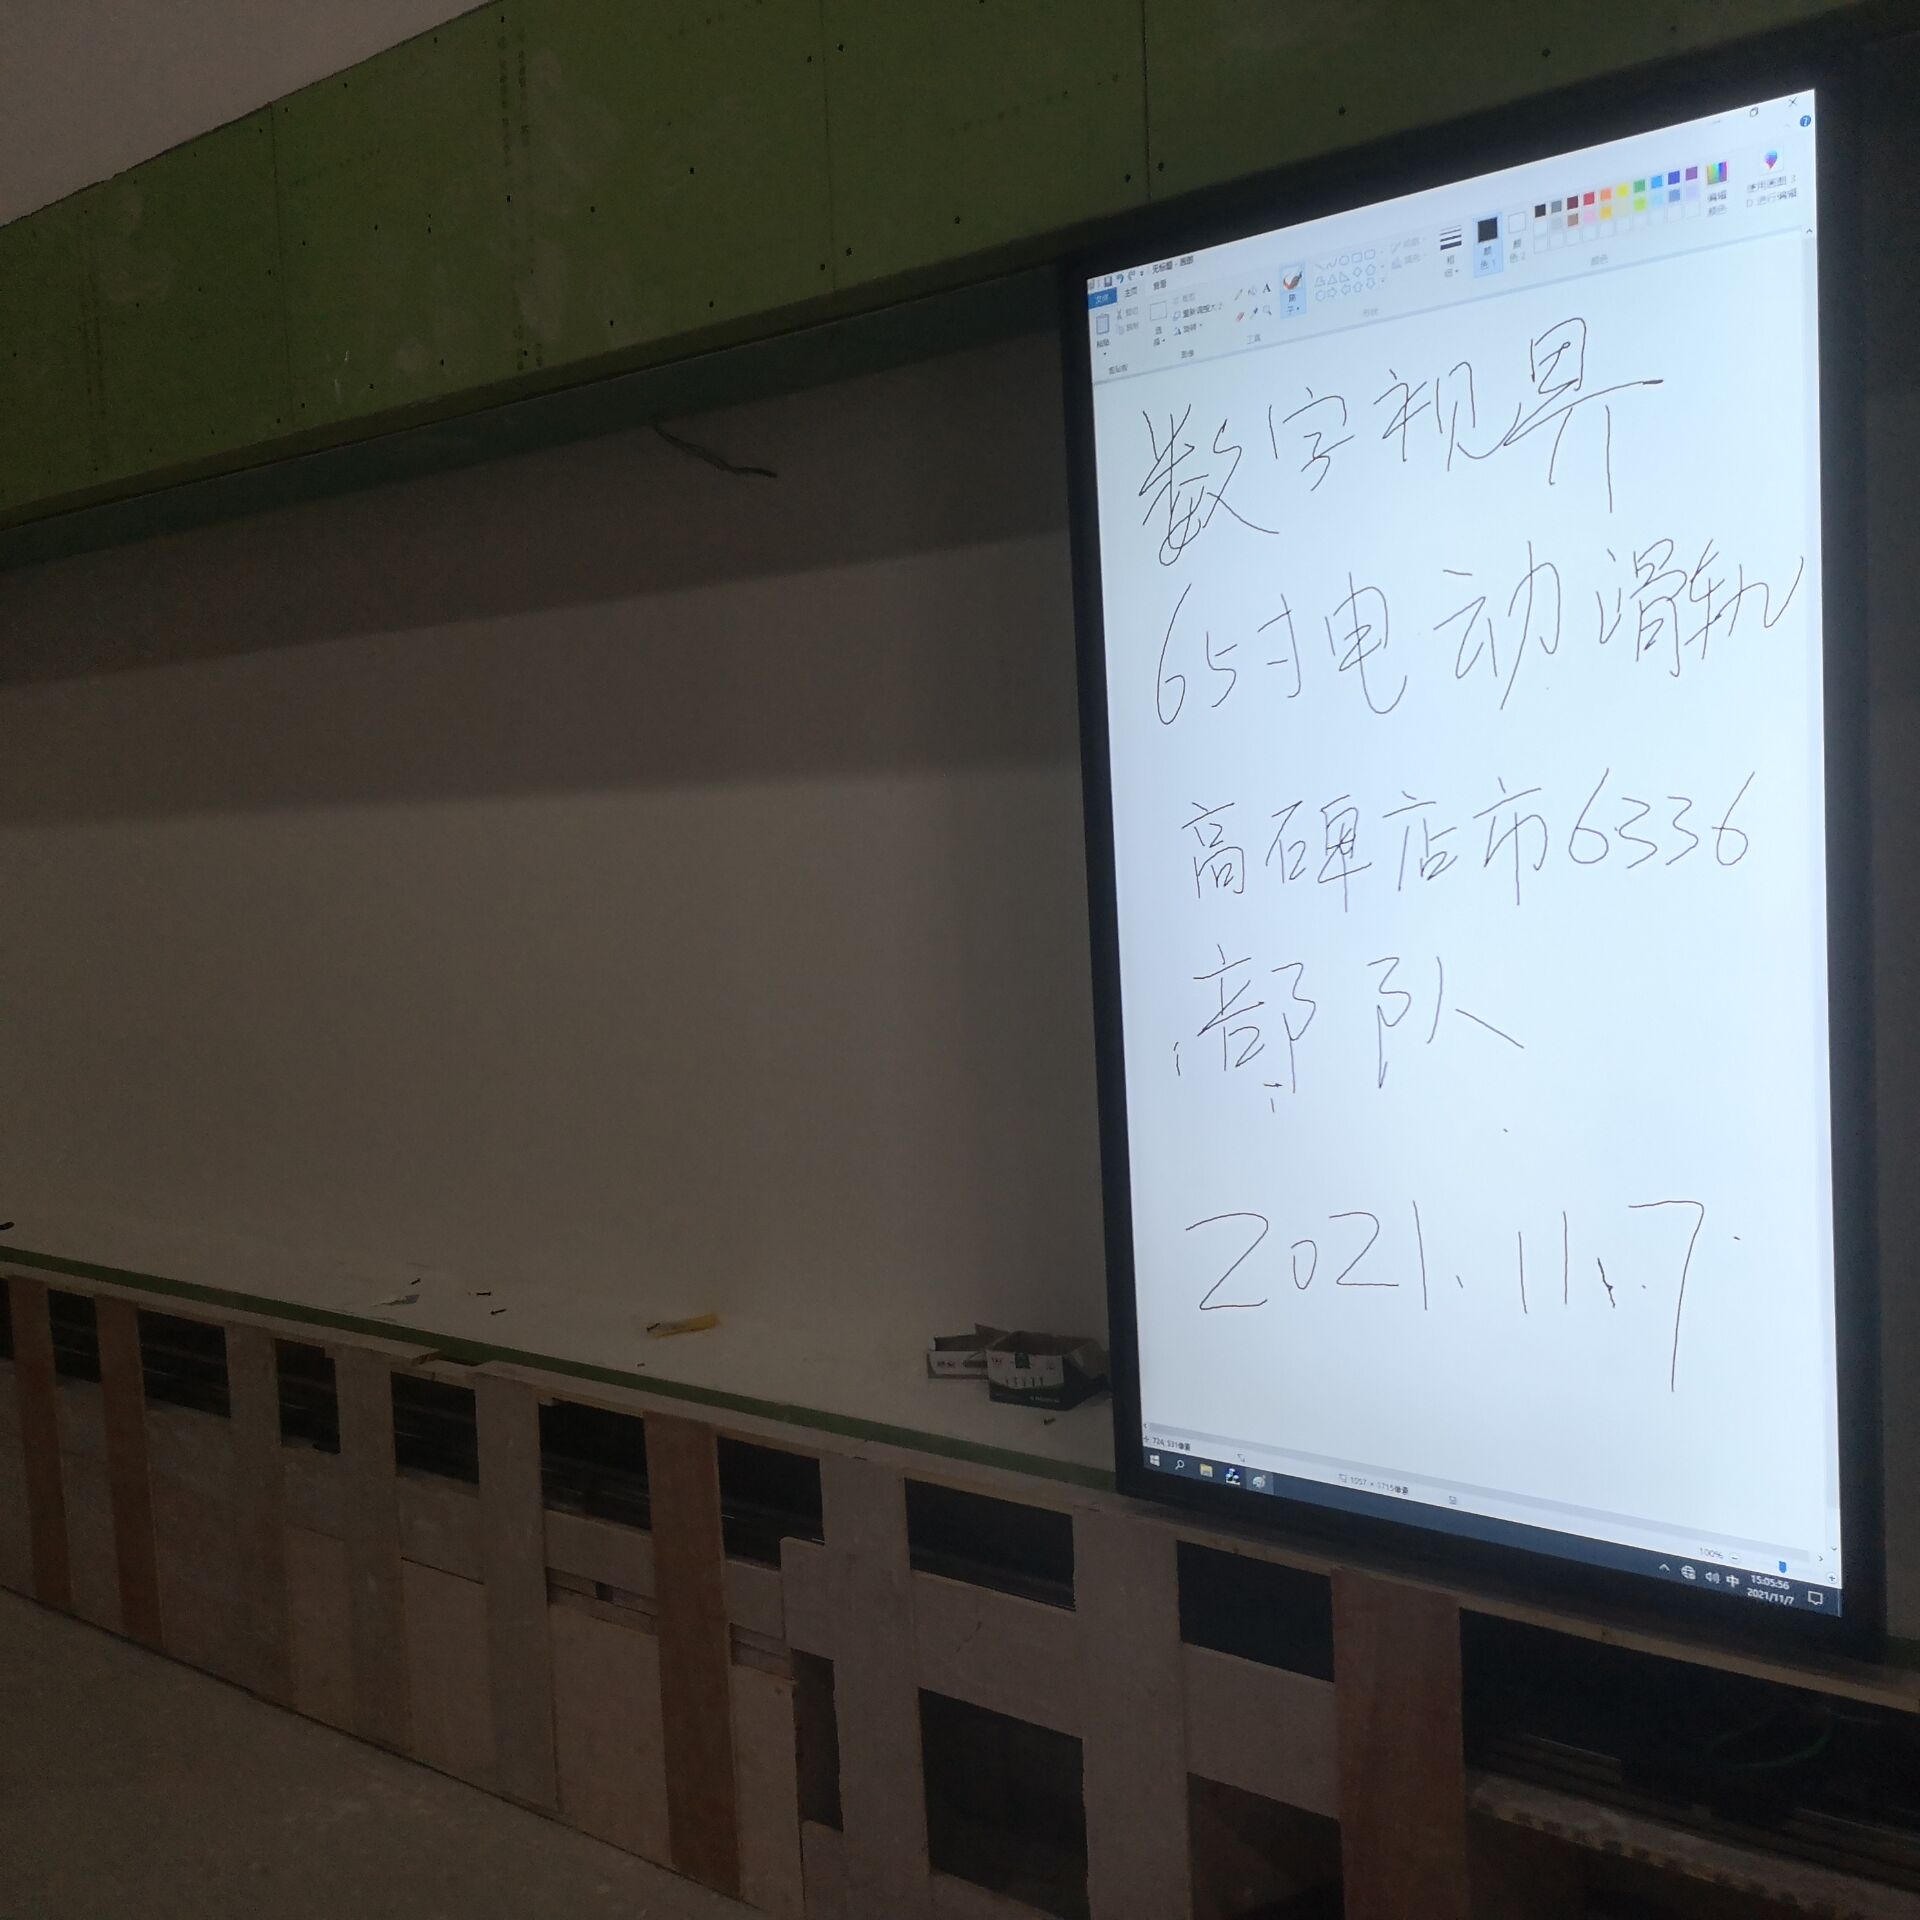 无标题 - 画图
文件 主页 查看
剪切
复制
粘贴
剪贴板
选择
裁剪
重新调整大小
旋转
图像
A
工具
刷子
形状
轮廓
填充
粗细
颜色 1
颜色 2
颜色
编辑颜色
使用画图 3D 进行编辑
数字视界
65寸电动滑轨
高碑店市6336
部队
2021.11.7
724, 531像素
100%
中
15:05:56
2021/11/7